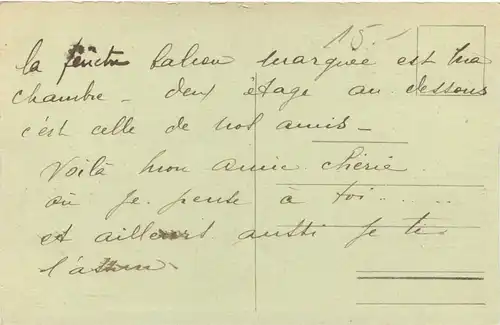 15.-
la fenêtre balcon marquée est ma
chambre - deux étage au dessous
c'est celle de nos amis -
Voilà mon amie chérie
où je pense à toi . . . . .
et ailleurs aussi je te